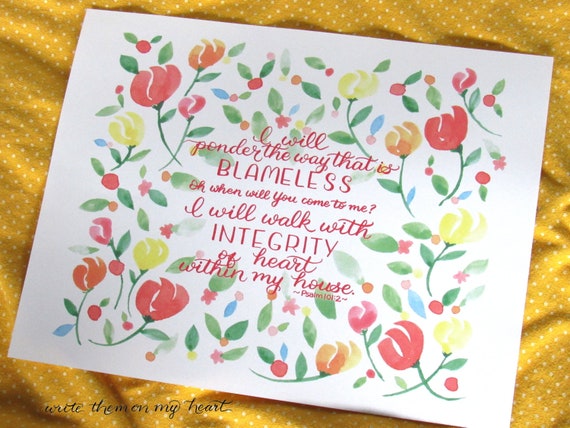 I will
ponder the way that is
BLAMELESS
Oh when will you come to me?
I will walk with
INTEGRITY
of heart
within my house.
~Psalm 101:2~
write them on my heart